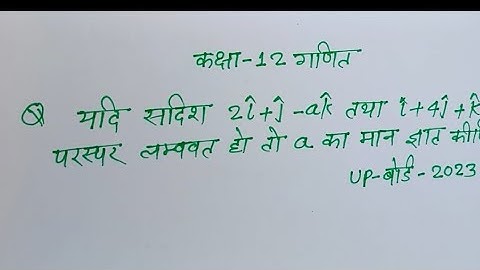 कक्षा-12 गणित
Q यदि सदिश 2î+ĵ-ak̂ तथा î+4ĵ+k̂
परस्पर लम्बवत हो तो a का मान ज्ञात
UP-बोर्ड-2023